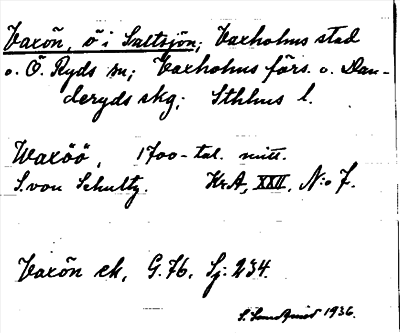 Vaxön, ö i Saltsjön; Vaxholms stad
o. Ö. Ryds sn; Vaxholms förs. o. Dan-
deryds skg; Sthlms l.
Waxöö, 1700-tal. mitt.
S. von Schultz. Kr.A, XXII, N:o 7.
Vaxön ek, G. 76, Sj: 234.
1936.